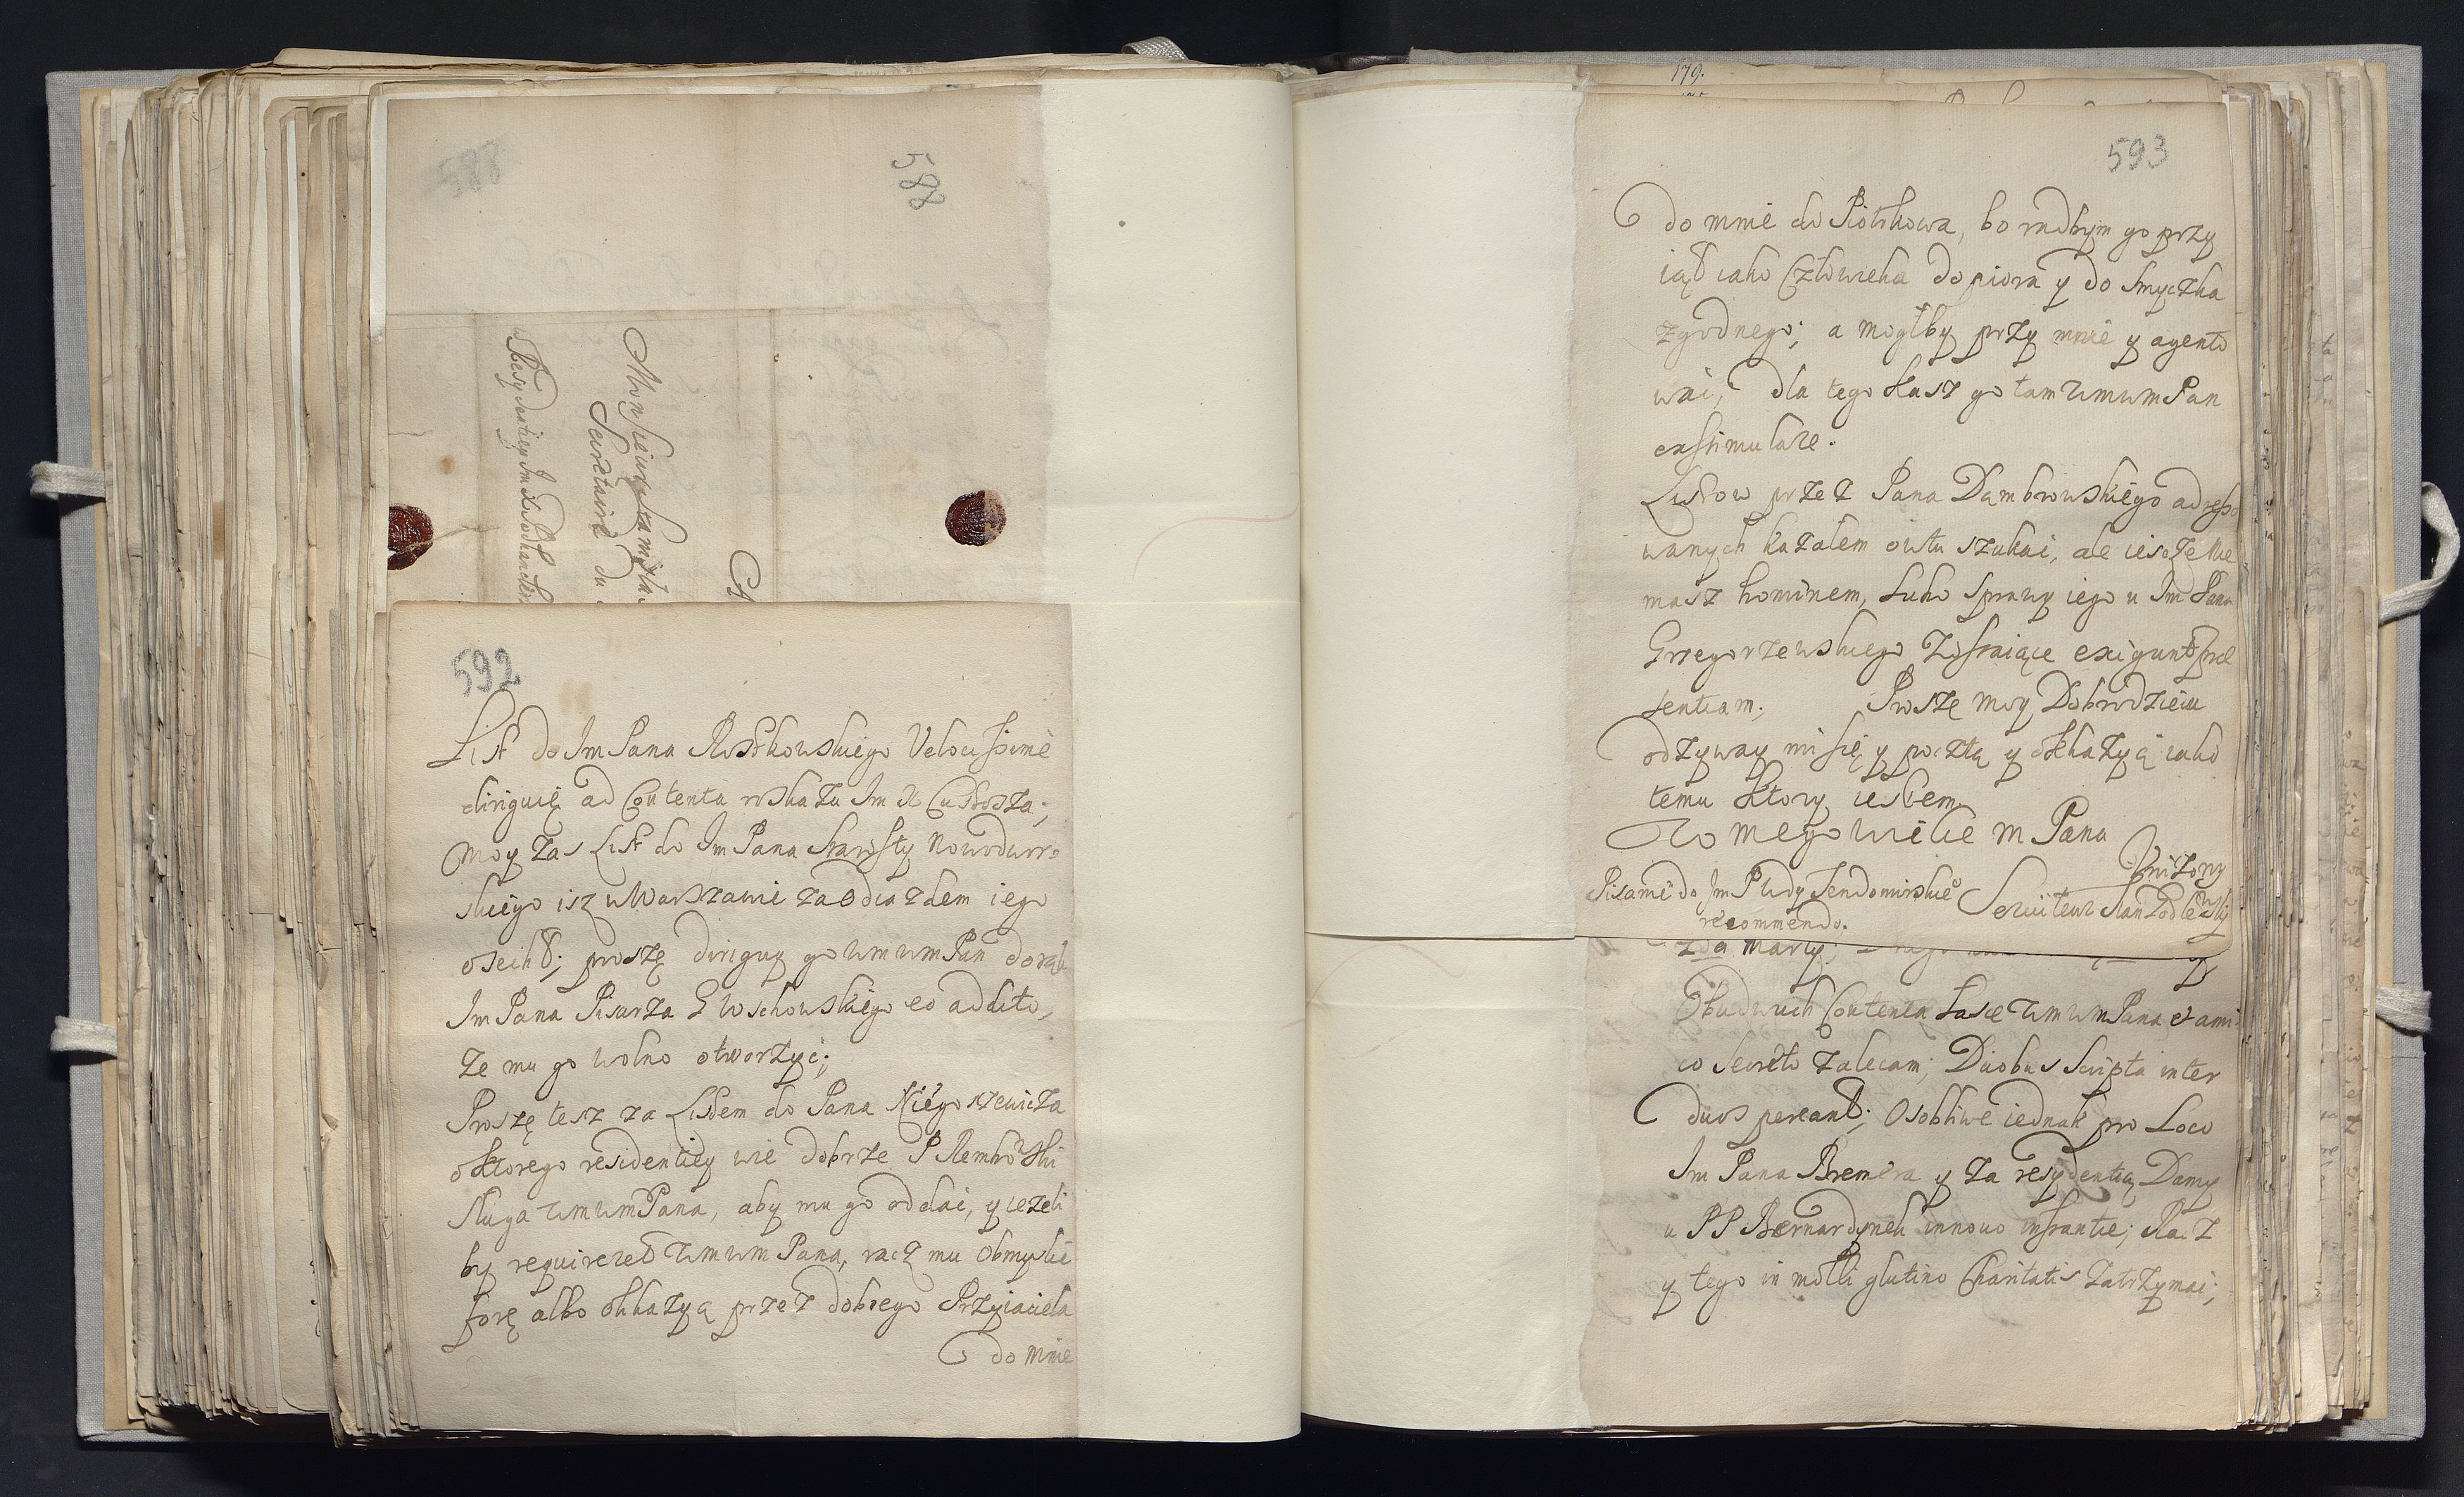 588
588
Monsieur
Secretaire du
592
List do Im Pana Rostkowskiego Velocissimè
diriguię ad Contenta roskazu Im X Custosza;
moy zas List do Im Pana Starosty Nowodwor-
skiego isz w Warszawie za Odiazdem iego
osechł; proszę diriguy go WmwmPan do rąk
Im Pana Pisarza G Wschowskiego eo addito,
ze mu go wolno otworzyć;
Proszę tesz za Listem do Pana Niegoszewicza
o ktorego residentiey wie dobrze P Rembowski
Sluga WmwmPana, aby mu go oddać, y iezeli
by requireret Wmwm Pana, racz mu Obmyslić
forę albo okkazyą przez dobrego Przyiaciela
do mnie
179.
593
do mnie do Piotrkowa, bo radbym go przy
iąć iako Człowieka do piora y do smyczka
zgodnego; a mogłby przy mnie y agento
wać, dla tego kasz go tam WmwmPan
exstimulare.
Listow przez Pana Dambrowskiego adresso
wanych kazałem owtu szukać, ale ieszcze nie
masz hominem, lubo sprawy iego u Im Pana
Grzegorzewskiego zostaiące exigunt prae
sentiam; Proszę moy Dobrodzieiu
odzyway mi się y pocztą y okkazyą iako
temu ktory iestem
Wo mego wielce m Pana
Unizony
Pisanie do Im P Udy Sendomirskie
recommendo.
zda Marty;
Obudwuch Contenta Łasce WmwmPana et ami
co secreto zalecam; Duobus scripta inter
duos pereant; Osobliwe iednak pro Loco
Im Pana Bremera y za residentią Damy
u PP Bernardynek innovo instantie; Racz
y tego in molli glutino Charitatis zatrzymać;